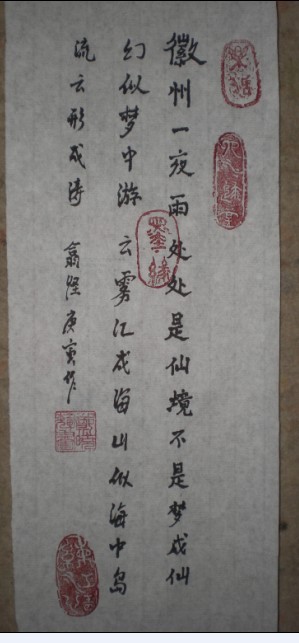 徽州一夜雨处处是仙境不是梦成仙
幻似梦中游云雾江成海山似海中岛
流云形成涛 庚寅作